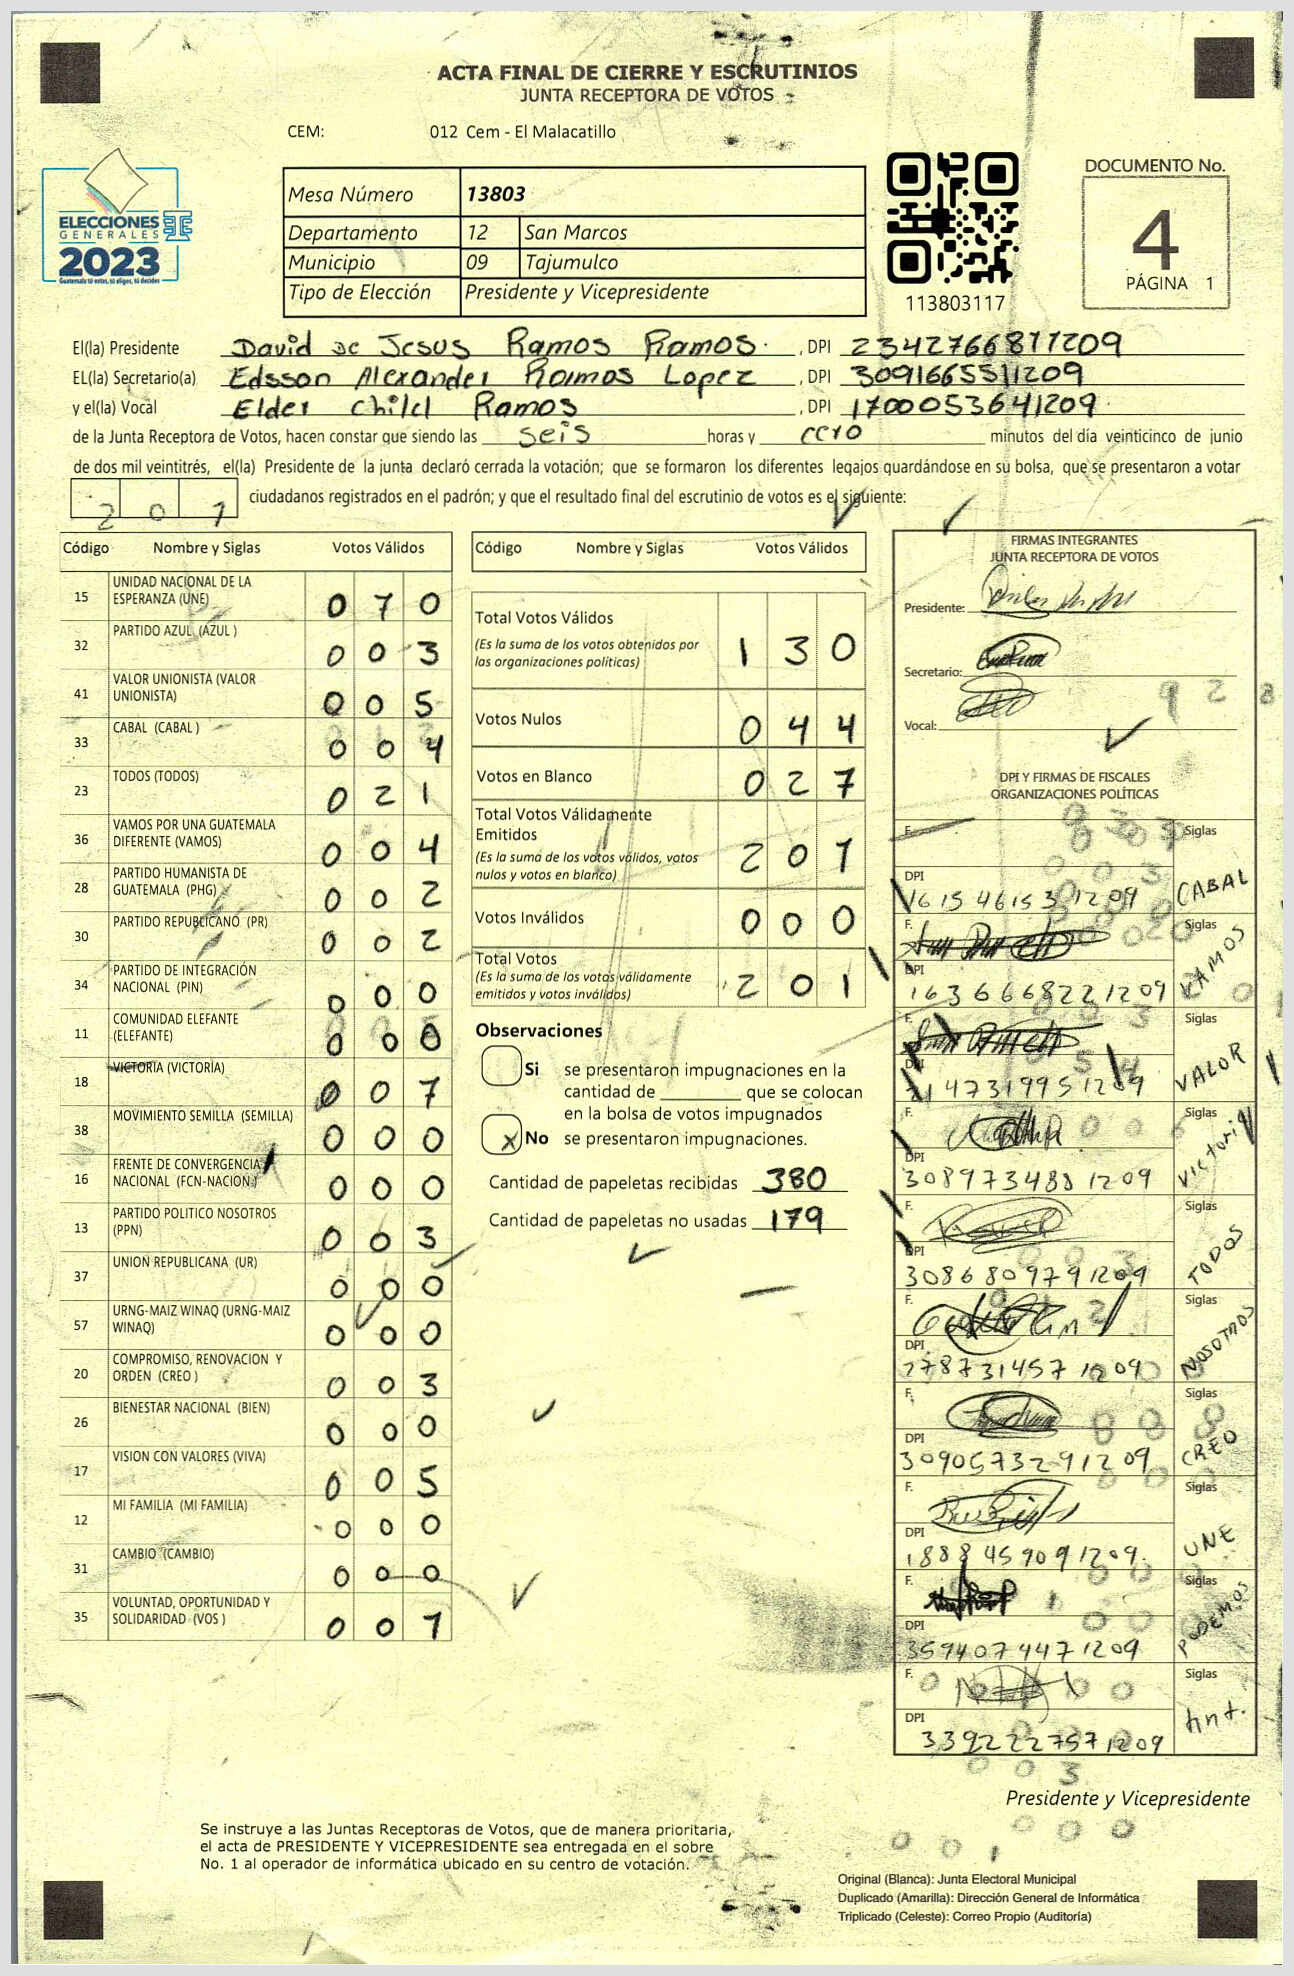 ACTA FINAL DE CIERRE Y ESCRUTINIOS
JUNTA RECEPTORA DE VOTOS
CEM: 012 Cem - El Malacatillo
ELECCIONES
GENERALES
2023
Guatemala tú votas, tú eliges, tú decides
Mesa Número 13803
Departamento 12 San Marcos
Municipio 09 Tajumulco
Tipo de Elección Presidente y Vicepresidente
113803117
DOCUMENTO No.
4
PÁGINA 1
El(la) Presidente David de Jesus Ramos Ramos , DPI 2342766871209
EL(la) Secretario(a) Edsson Alexander Ramos Lopez , DPI 3091665511209
y el(la) Vocal Elder Child Ramos , DPI 1700053641209
de la Junta Receptora de Votos, hacen constar que siendo las seis horas y cero minutos del día veinticinco de junio
de dos mil veintitrés, el(la) Presidente de la junta declaró cerrada la votación; que se formaron los diferentes legajos guardándose en su bolsa, que se presentaron a votar
201 ciudadanos registrados en el padrón; y que el resultado final del escrutinio de votos es el siguiente:
Código Nombre y Siglas Votos Válidos
15 UNIDAD NACIONAL DE LA ESPERANZA (UNE) 070
32 PARTIDO AZUL (AZUL ) 003
41 VALOR UNIONISTA (VALOR UNIONISTA) 005
33 CABAL (CABAL ) 004
23 TODOS (TODOS) 021
36 VAMOS POR UNA GUATEMALA DIFERENTE (VAMOS) 004
28 PARTIDO HUMANISTA DE GUATEMALA (PHG) 002
30 PARTIDO REPUBLICANO (PR) 002
34 PARTIDO DE INTEGRACIÓN NACIONAL (PIN) 000
11 COMUNIDAD ELEFANTE (ELEFANTE) 000
18 VICTORIA (VICTORIA) 007
38 MOVIMIENTO SEMILLA (SEMILLA) 000
16 FRENTE DE CONVERGENCIA NACIONAL (FCN-NACION) 000
13 PARTIDO POLITICO NOSOTROS (PPN) 003
37 UNION REPUBLICANA (UR) 000
57 URNG-MAIZ WINAQ (URNG-MAIZ WINAQ) 000
20 COMPROMISO, RENOVACION Y ORDEN (CREO ) 003
26 BIENESTAR NACIONAL (BIEN) 000
17 VISION CON VALORES (VIVA) 005
12 MI FAMILIA (MI FAMILIA) 000
31 CAMBIO (CAMBIO) 000
35 VOLUNTAD, OPORTUNIDAD Y SOLIDARIDAD (VOS ) 001
Código Nombre y Siglas Votos Válidos
Total Votos Válidos 130
(Es la suma de los votos obtenidos por
las organizaciones políticas)
Votos Nulos 044
Votos en Blanco 027
Total Votos Válidamente
Emitidos 201
(Es la suma de los votos válidos, votos
nulos y votos en blanco)
Votos Inválidos 000
Total Votos 201
(Es la suma de los votos válidamente
emitidos y votos inválidos)
Observaciones
Si se presentaron impugnaciones en la
cantidad de ________ que se colocan
en la bolsa de votos impugnados
X No se presentaron impugnaciones.
Cantidad de papeletas recibidas 380
Cantidad de papeletas no usadas 179
FIRMAS INTEGRANTES
JUNTA RECEPTORA DE VOTOS
Presidente:
Secretario:
Vocal:
DPI Y FIRMAS DE FISCALES
ORGANIZACIONES POLÍTICAS
F. Siglas
DPI 1615461531209 CABAL
F. Siglas
DPI 1636668221209 VAMOS
F. Siglas
DPI 2147319951209 VALOR
F. Siglas
DPI 3089734881209 Victoria
F. Siglas
DPI 3086809791209 TODOS
F. Siglas
DPI 2787314571209 NOSOTROS
F. Siglas
DPI 3090573291209 CREO
F. Siglas
DPI 1888459091209 UNE
F. Siglas
DPI 3594074471209 PODEMOS
F. Siglas
DPI 3392227571209
Presidente y Vicepresidente
Se instruye a las Juntas Receptoras de Votos, que de manera prioritaria,
el acta de PRESIDENTE Y VICEPRESIDENTE sea entregada en el sobre
No. 1 al operador de informática ubicado en su centro de votación.
Original (Blanca): Junta Electoral Municipal
Duplicado (Amarilla): Dirección General de Informática
Triplicado (Celeste): Correo Propio (Auditoría)